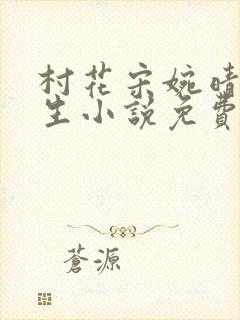 村花宋婉晴
生小說免費
蒼源